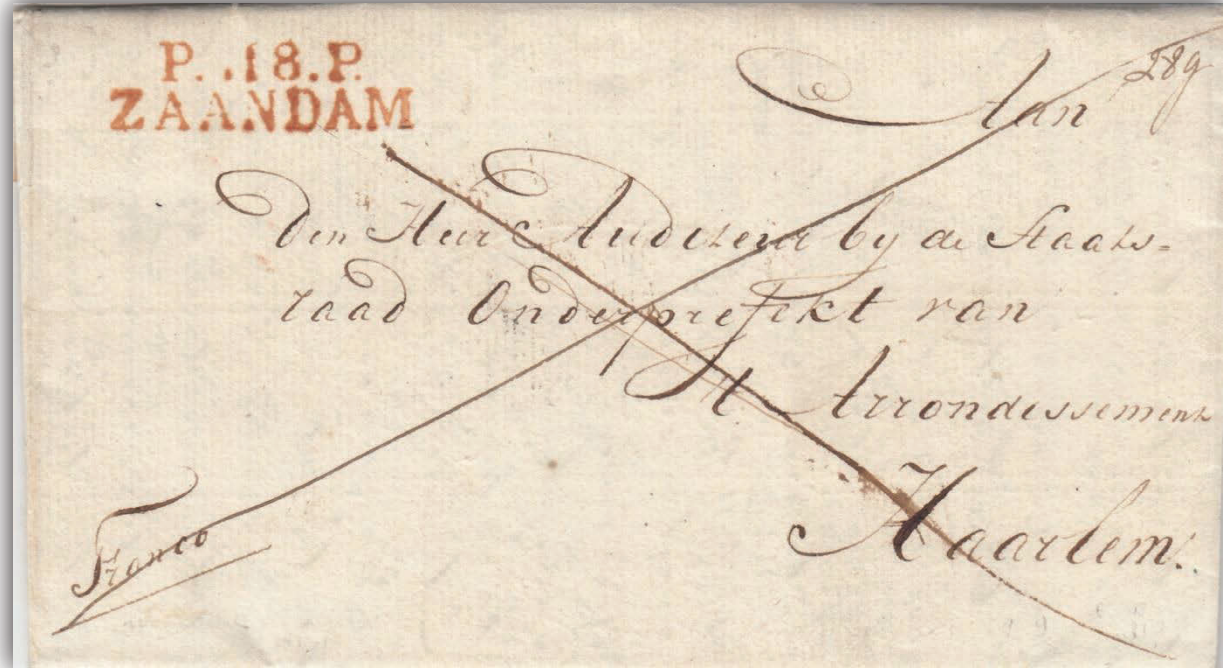 P. .18.P.
ZAANDAM
289
Aan
Den Heer Auditeur by de Staats-
raad Onderprefekt van
't Arrondissement
Haarlem.
Franco